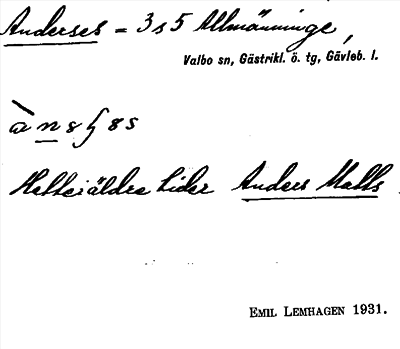 Anderses = 3 s 5 Allmänninge,
Valbo sn, Gästrikl. ö. tg, Gävleb. l.
Hette i äldre tider Anders Matts
EMIL LEMHAGEN 1931.